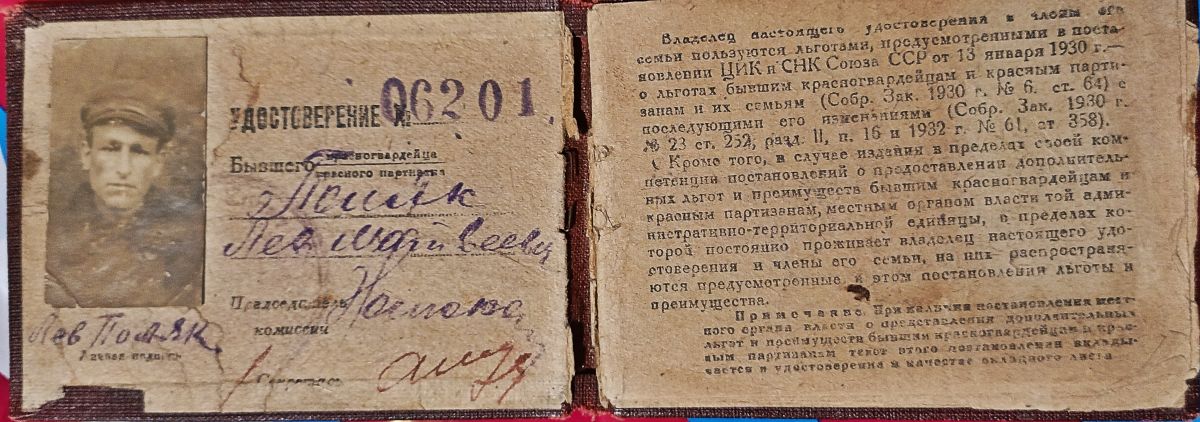 УДОСТОВЕРЕНИЕ № 06201.
Бывшего красногвардейца
красного партизана
т. Поляк
Лев Матвеевич
Председатель
комиссии
Лев Поляк
Личная подпись
Секретарь
Владелец настоящего удостоверения и члены его
семьи пользуются льготами, предусмотренными в поста-
новлении ЦИК и СНК Союза ССР от 13 января 1930 г.—
о льготах бывшим красногвардейцам и красным парти-
занам и их семьям (Собр. Зак. 1930 г. № 6. ст. 64) с
последующими его изменениями (Собр. Зак. 1930 г.
№ 23 ст. 252, разд. II, п. 16 и 1932 г. № 61, ст 358).
Кроме того, в случае издания в пределах своей ком-
петенции постановлений о предоставлении дополнитель-
ных льгот и преимуществ бывшим красногвардейцам и
красным партизанам, местным органом власти той адми-
нистративно-территориальной единицы, в пределах ко-
торой постоянно проживает владелец настоящего удо-
стоверения и члены его семьи, на них распространя-
ются предусмотренные в этом постановлении льготы и
преимущества.
Примечание. При наличии постановления мест-
ного органа власти о представлении дополнительных
льгот и преимуществ бывшим красногвардейцам и крас-
ным партизанам текст этого постановления вклады-
вается в удостоверения в качестве вкладного листа